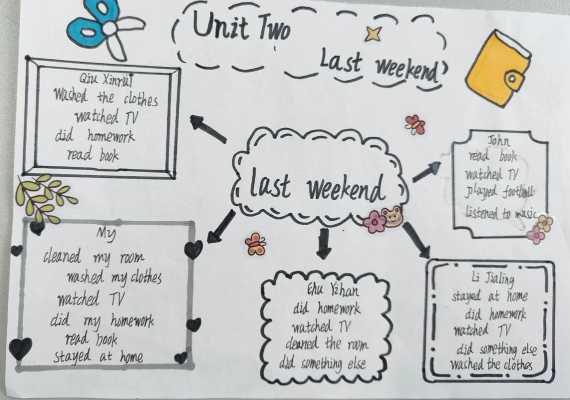 Unit Two
Last weekend
Qiu Xinrui
Washed the clothes
watched TV
did homework
read book
last weekend
John
read book
watched TV
played football
listened to music
My
cleaned my room
washed my clothes
watched TV
did my homework
read book
stayed at home
Yihan
did homework
watched TV
cleaned the room
did something else
Li Jialing
stayed at home
did homework
watched TV
did something else
washed the clothes